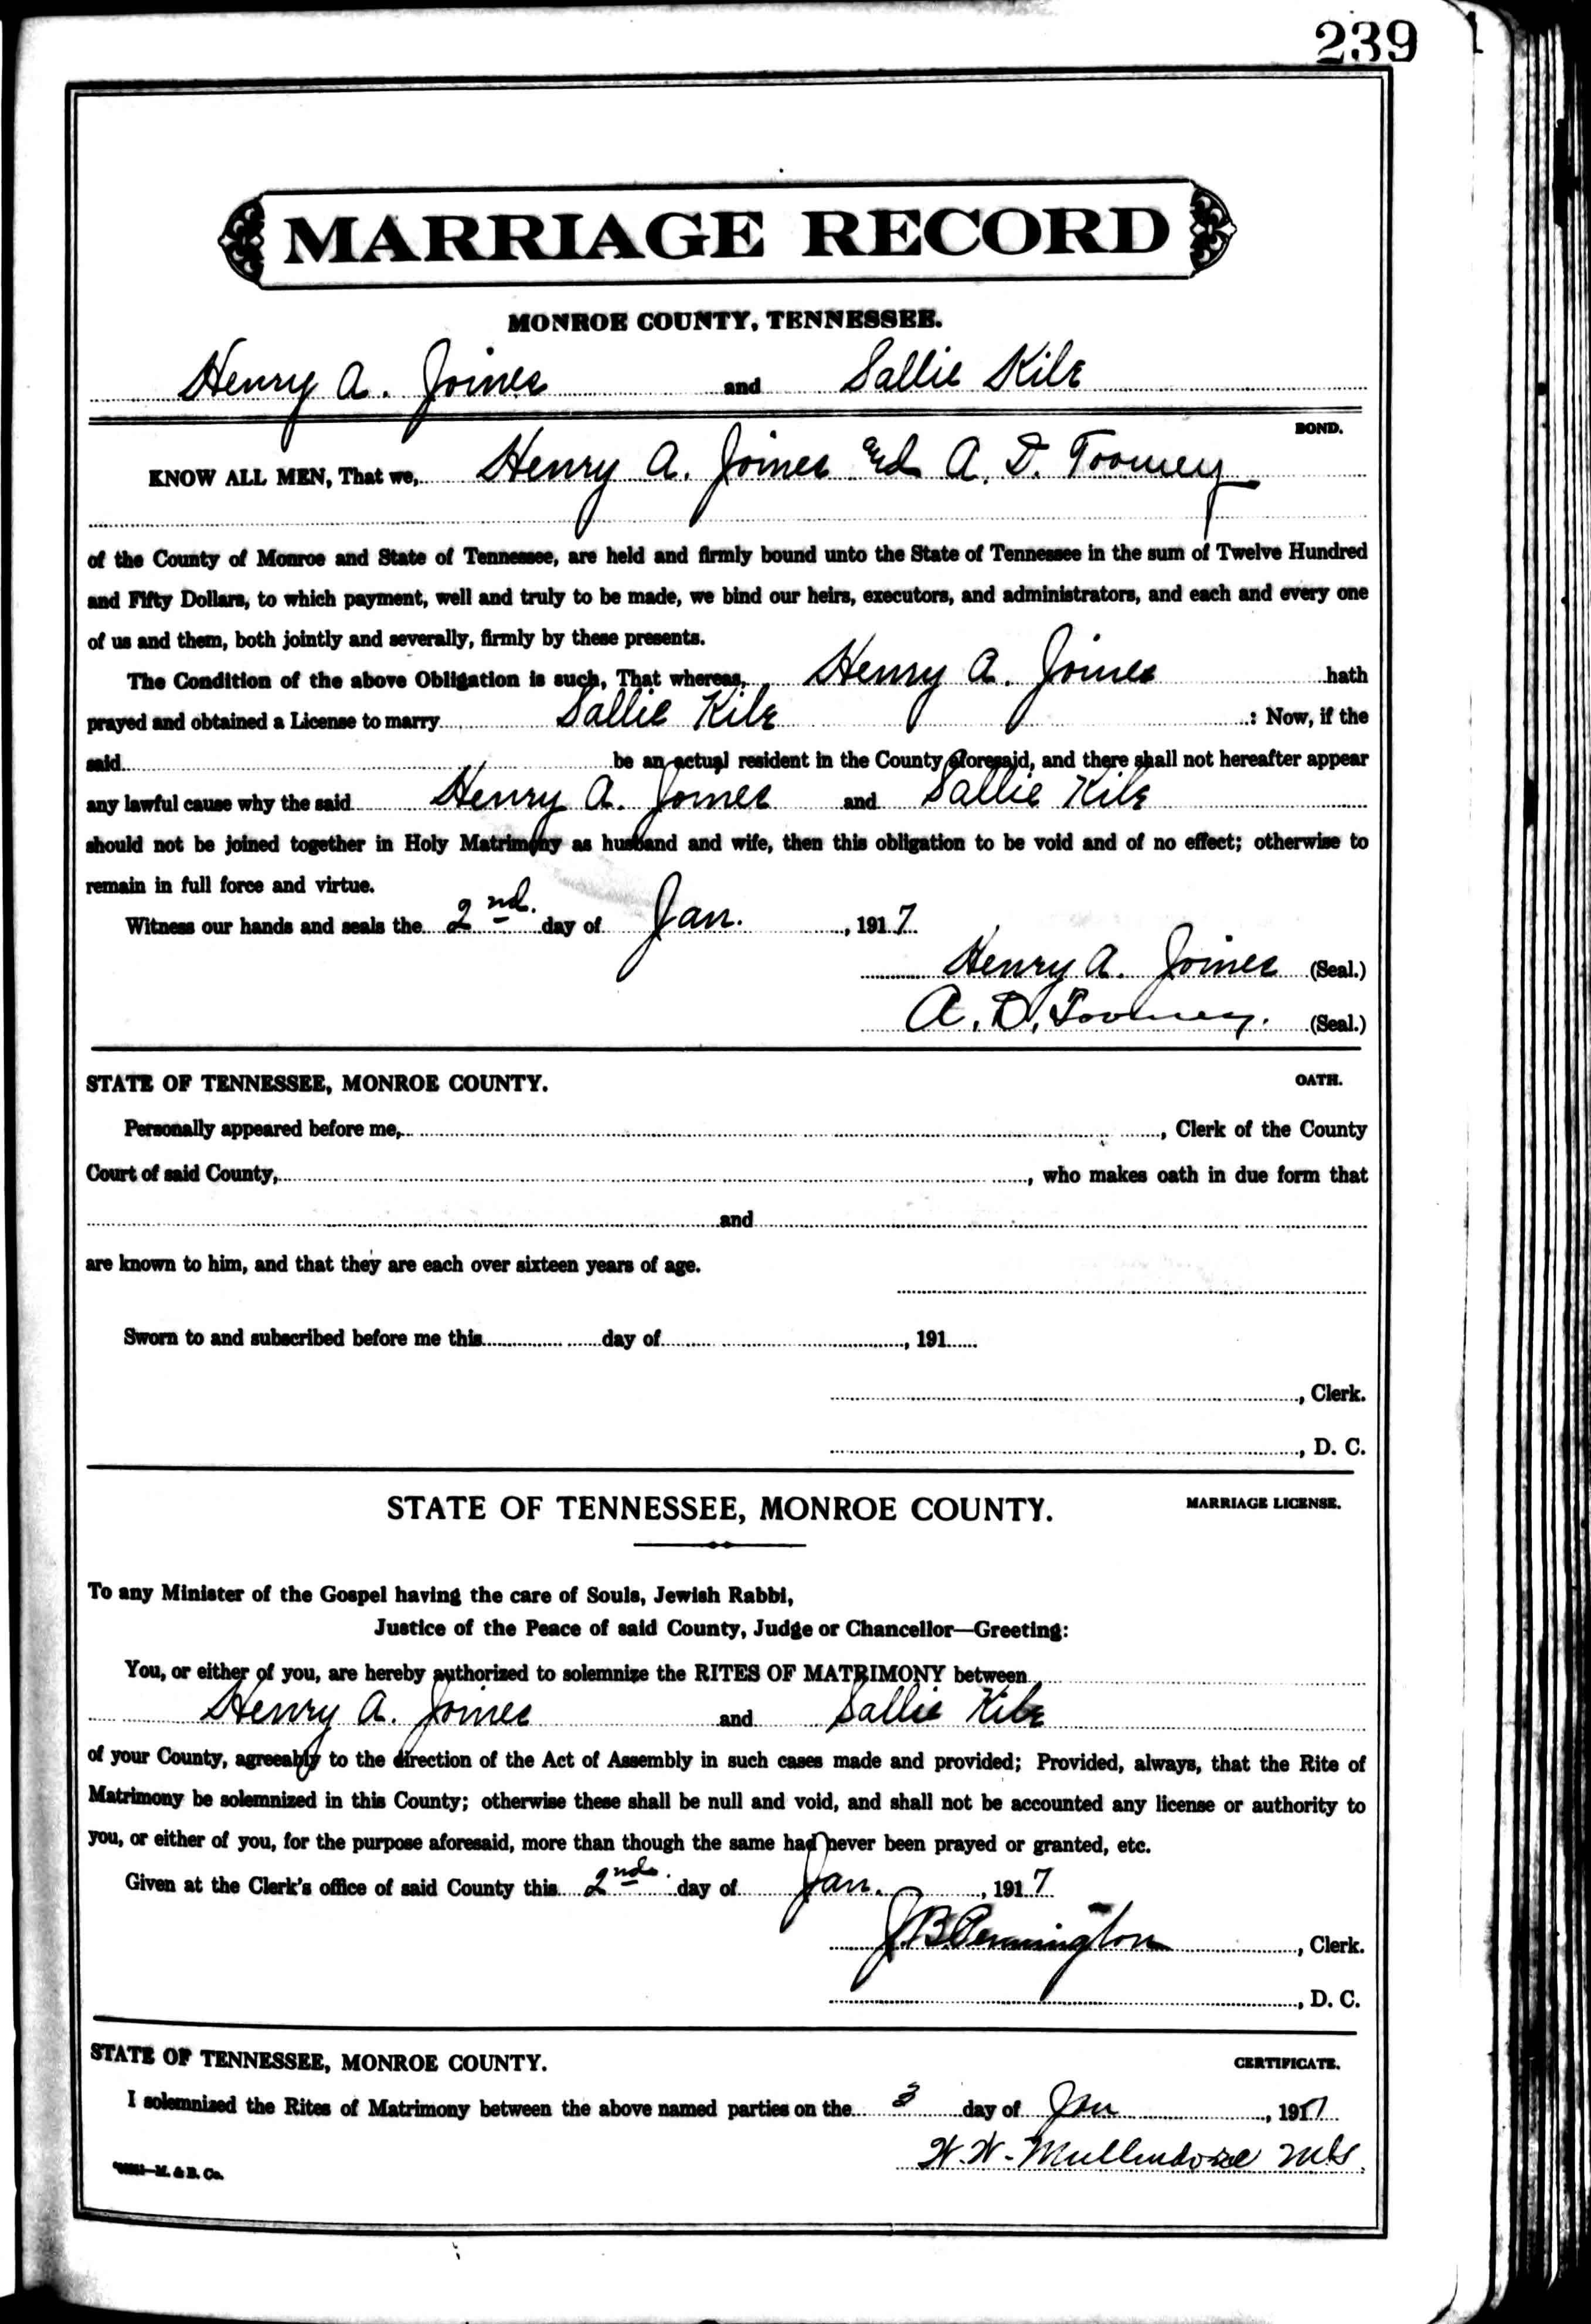 239
MARRIAGE RECORD
MONROE COUNTY, TENNESSEE.
Henry A. Joines and Sallie Kile
BOND.
KNOW ALL MEN, That we, Henry A. Joines and A. D. Toomey
of the County of Monroe and State of Tennessee, are held and firmly bound unto the State of Tennessee in the sum of Twelve Hundred
and Fifty Dollars, to which payment, well and truly to be made, we bind our heirs, executors, and administrators, and each and every one
of us and them, both jointly and severally, firmly by these presents.
The Condition of the above Obligation is such, That whereas, Henry A. Joines hath
prayed and obtained a License to marry Sallie Kile : Now, if the
said be an actual resident in the County aforesaid, and there shall not hereafter appear
any lawful cause why the said Henry A. Joines and Sallie Kile
should not be joined together in Holy Matrimony as husband and wife, then this obligation to be void and of no effect; otherwise to
remain in full force and virtue.
Witness our hands and seals the 2nd. day of Jan. , 1917
Henry A. Joines (Seal.)
A. D. Toomey. (Seal.)
STATE OF TENNESSEE, MONROE COUNTY. OATH.
Personally appeared before me, , Clerk of the County
Court of said County, , who makes oath in due form that
and
are known to him, and that they are each over sixteen years of age.
Sworn to and subscribed before me this day of , 191
, Clerk.
, D. C.
STATE OF TENNESSEE, MONROE COUNTY. MARRIAGE LICENSE.
To any Minister of the Gospel having the care of Souls, Jewish Rabbi,
Justice of the Peace of said County, Judge or Chancellor—Greeting:
You, or either of you, are hereby authorized to solemnize the RITES OF MATRIMONY between
Henry A. Joines and Sallie Kile
of your County, agreeably to the direction of the Act of Assembly in such cases made and provided; Provided, always, that the Rite of
Matrimony be solemnized in this County; otherwise these shall be null and void, and shall not be accounted any license or authority to
you, or either of you, for the purpose aforesaid, more than though the same had never been prayed or granted, etc.
Given at the Clerk's office of said County this 2nd. day of Jan. , 1917
J. B. Pennington , Clerk.
, D. C.
STATE OF TENNESSEE, MONROE COUNTY. CERTIFICATE.
I solemnized the Rites of Matrimony between the above named parties on the 3 day of Jan , 1917
W. W. Mullendore
M. & B. Co.